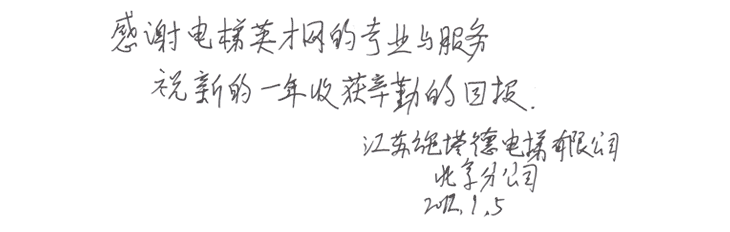 感谢电梯英才网的专业与服务
祝新的一年收获辛勤的回报.
江苏施塔德电梯有限公司
北京分公司
2012.1.5